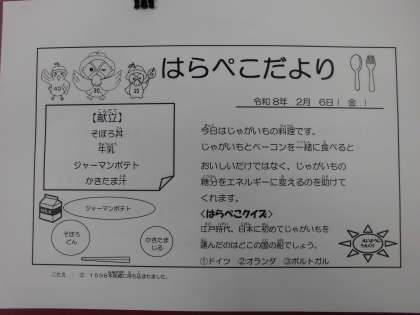 はらぺこだより
令和8年 2月 6日( 金 )
【献立】
そぼろ丼
牛乳
ジャーマンポテト
かきたま汁
今日はじゃがいもの料理です。
じゃがいもとベーコンを一緒に食べると
おいしいだけではなく、じゃがいもの
糖分をエネルギーに変えるのを助けて
くれます。
<はらぺこクイズ>
江戸時代、日本に初めてじゃがいもを
運んだのはどこの国の船でしょう。
①ドイツ ②オランダ ③ポルトガル
ジャーマンポテト
そぼろ
どん
かきたま
じる
こたえ : ② 1598年長崎に持ち込まれました。